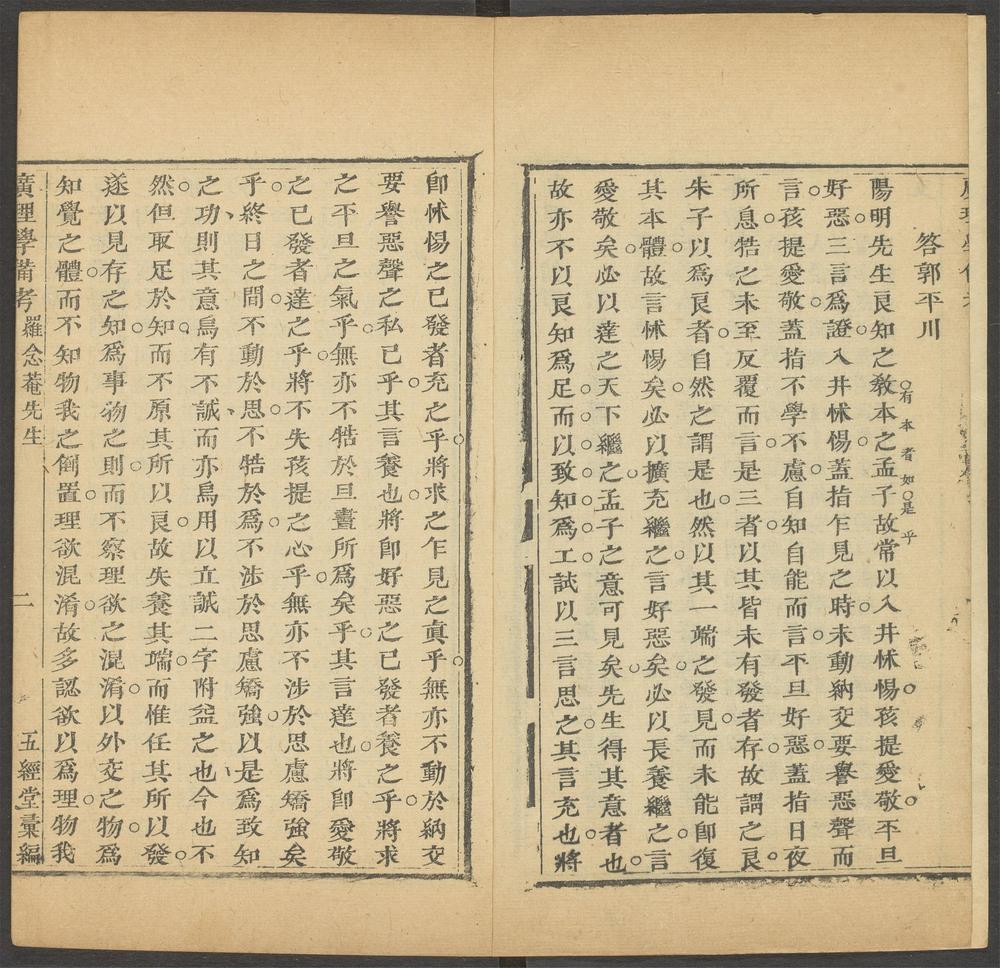 答郭平川
有本者如是乎
陽明先生良知之教本之孟子故常以入井怵惕孩提愛敬平旦
好惡三言爲證入井怵惕蓋指乍見之時未動納交要譽惡聲而
言孩提愛敬蓋指不學不慮自知自能而言平旦好惡蓋指日夜
所息牿之未至反覆而言是三者以其皆未有發者存故謂之良
朱子以爲良者自然之謂是也然以其一端之發見而未能卽復
其本體故言怵惕矣必以擴充繼之言好惡矣必以長養繼之言
愛敬矣必以達之天下繼之孟子之意可見矣先生得其意者也
故亦不以良知爲足而以致知爲工試以三言思之其言充也將
卽怵惕之已發者充之乎將求之乍見之眞乎無亦不動於納交
要譽惡聲之私已乎其言養也將卽好惡之已發者養之乎將求
之平旦之氣乎無亦不牿於旦晝所爲矣乎其言達也將卽愛敬
之已發者達之乎將不失孩提之心乎無亦不涉於思慮矯強矣
乎終日之間不動於思不牿於爲不涉於思慮矯強以是爲致知
之功則其意烏有不誠而亦烏用以立誠二字附益之也今也不
然但取足於知而不原其所以良故失養其端而惟任其所以發
遂以見存之知爲事物之則而不察理欲之混淆以外交之物爲
知覺之體而不知物我之倒置理欲混淆故多認欲以爲理物我
廣理學備考 羅念菴先生 二 五經堂彙編